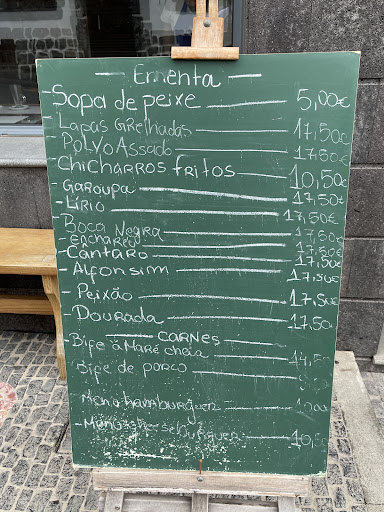 - Ementa -
- Sopa de peixe - 5,00€
- Lapas Grelhadas - 17,50€
- Polvo Assado - 17,50€
- Chicharros fritos - 10,50€
- Garoupa - 17,50€
- Lírio - 17,50€
- Boca Negra - 17,50€
- Encharéu - 17,50€
- Cantaro - 17,50€
- Alfonsim - 17,50€
- Peixão - 17,50€
- Dourada - 17,50€
- Carnes -
- Bife á Maré cheia - 14,50
- Bife de porco
Menu hamburguer
- Menu 10,50